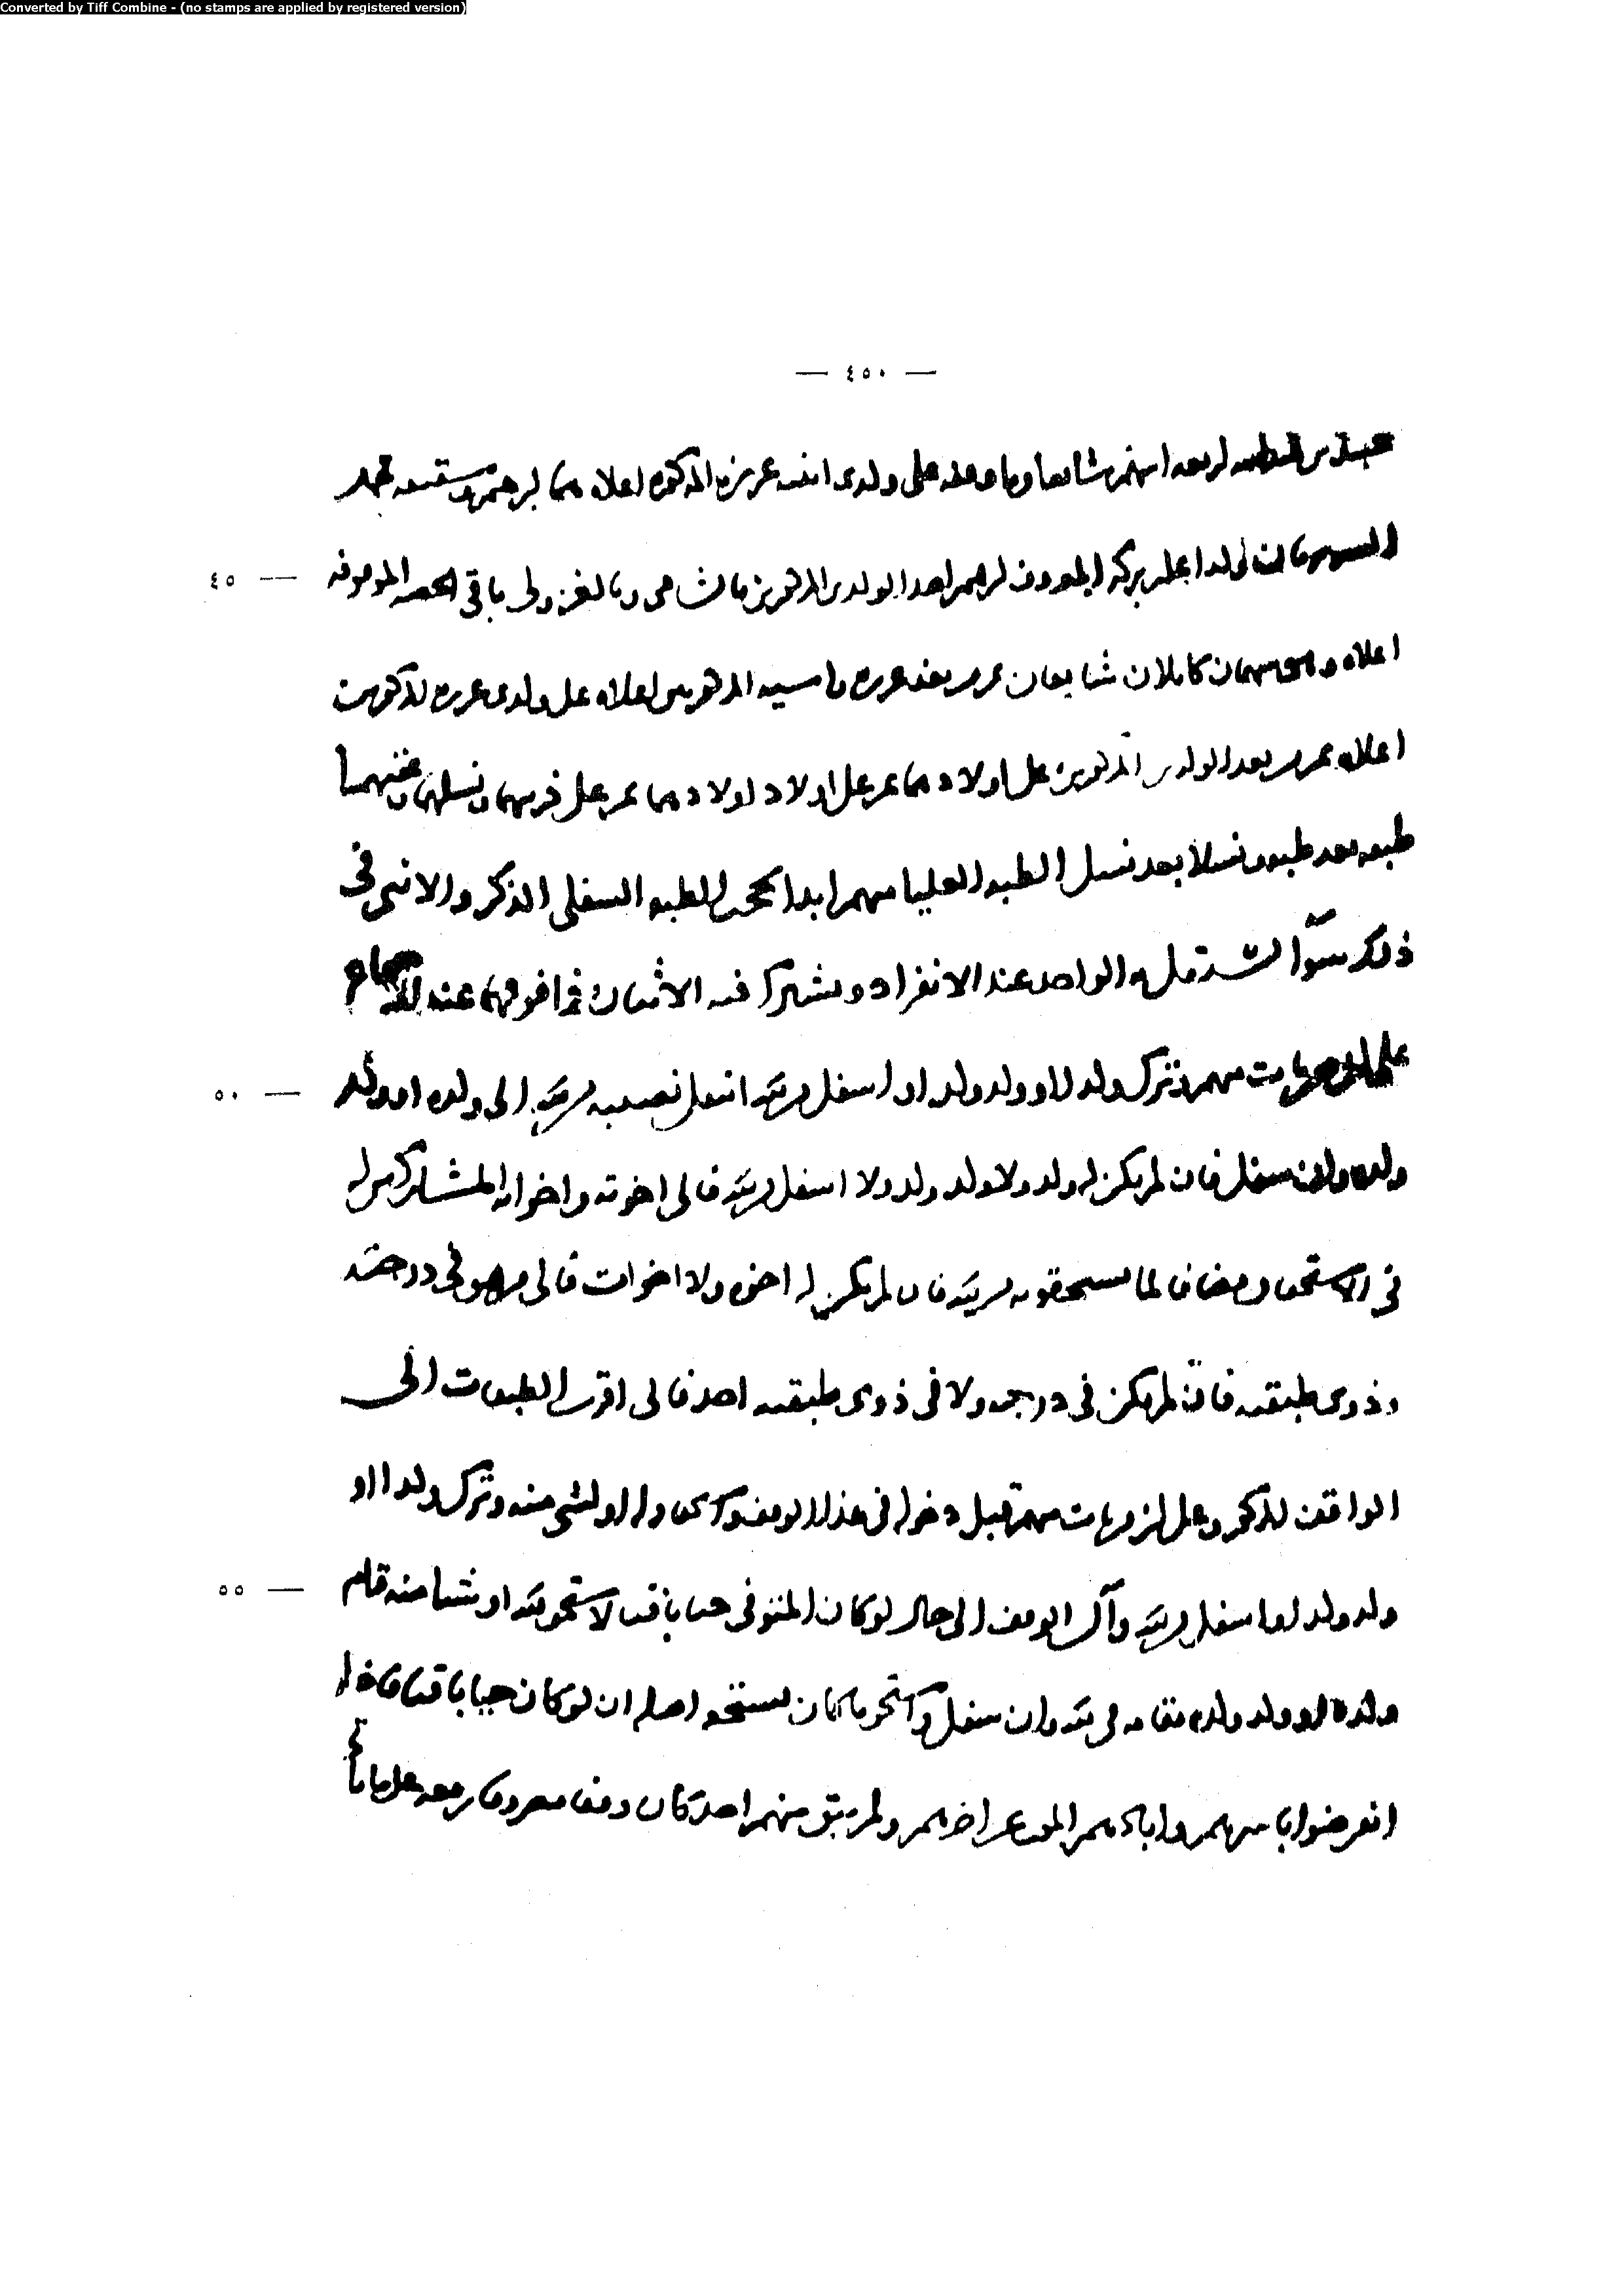 Converted by Tiff Combine - (no stamps are applied by registered version)
— ٤٥٠ —
اربعه اسهم شايعا وما وقفه على ولدى ابنته عزيزه المذكوره اعلاه هما ابرهيم وشقيقه محمد
لولد المعروف ابرهيم احد الولدين المذكورين باقى الحصه الموقوفه
٤٥ —
اعلاه وهى سهمان كاملان شايعان ثم من بعد عزيزه المذكورين اعلاه على ولدى عزيزه المذكورين
اعلاه ثم من بعد الولدين المذكورين على اولادهما ثم على اولاد اولادهما ثم على ذريتهما ونسلهما وعقبهما
طبقه بعد طبقه ونسلا بعد نسل الطبقه العليا منهم ابدا تحجب الطبقه السفلى الذكر والانثى فى
ذلك سوآ يستقل به الواحد عند الانفراد ويشترك فيه الاثنان فما فوقهما عند الاجتماع
على ان من مات منهم وترك ولدا او ولد ولد او اسفل من ذلك انتقل نصيبه من ذلك الى ولده او ولد
٥٠ —
ولده وان سفل فان لم يكن له ولد ولا ولد ولد ولا اسفل من ذلك فالى اخوته واخواته المشاركين له
فى الاستحقاق مضافا لما يستحقونه من ذلك فان لم يكن له اخوه ولا اخوات فالى من هو فى درجته
وذوى طبقته فان لم يكن فى درجته ولا فى ذوى طبقته احد فالى اقرب الطبقات الى
الواقف المذكور وعلى ان من مات منهم قبل دخوله فى هذا الوقف واستحقاقه لشى منه وترك ولدا او
ولد ولد او اسفل من ذلك وآل الوقف الى حال لو كان المتوفى حيا باقيا لاستحق ذلك او شيا منه قام
٥٥ —
ولده او ولد ولده مقامه فى ذلك وان سفل واستحق ما كان يستحقه اصله ان لو كان حيا باقيا فاذا
انقرضوا باسرهم وابادهم الموت عن اخرهم ولم يبق منهم احد كان وقفا مصروفا ريعه على